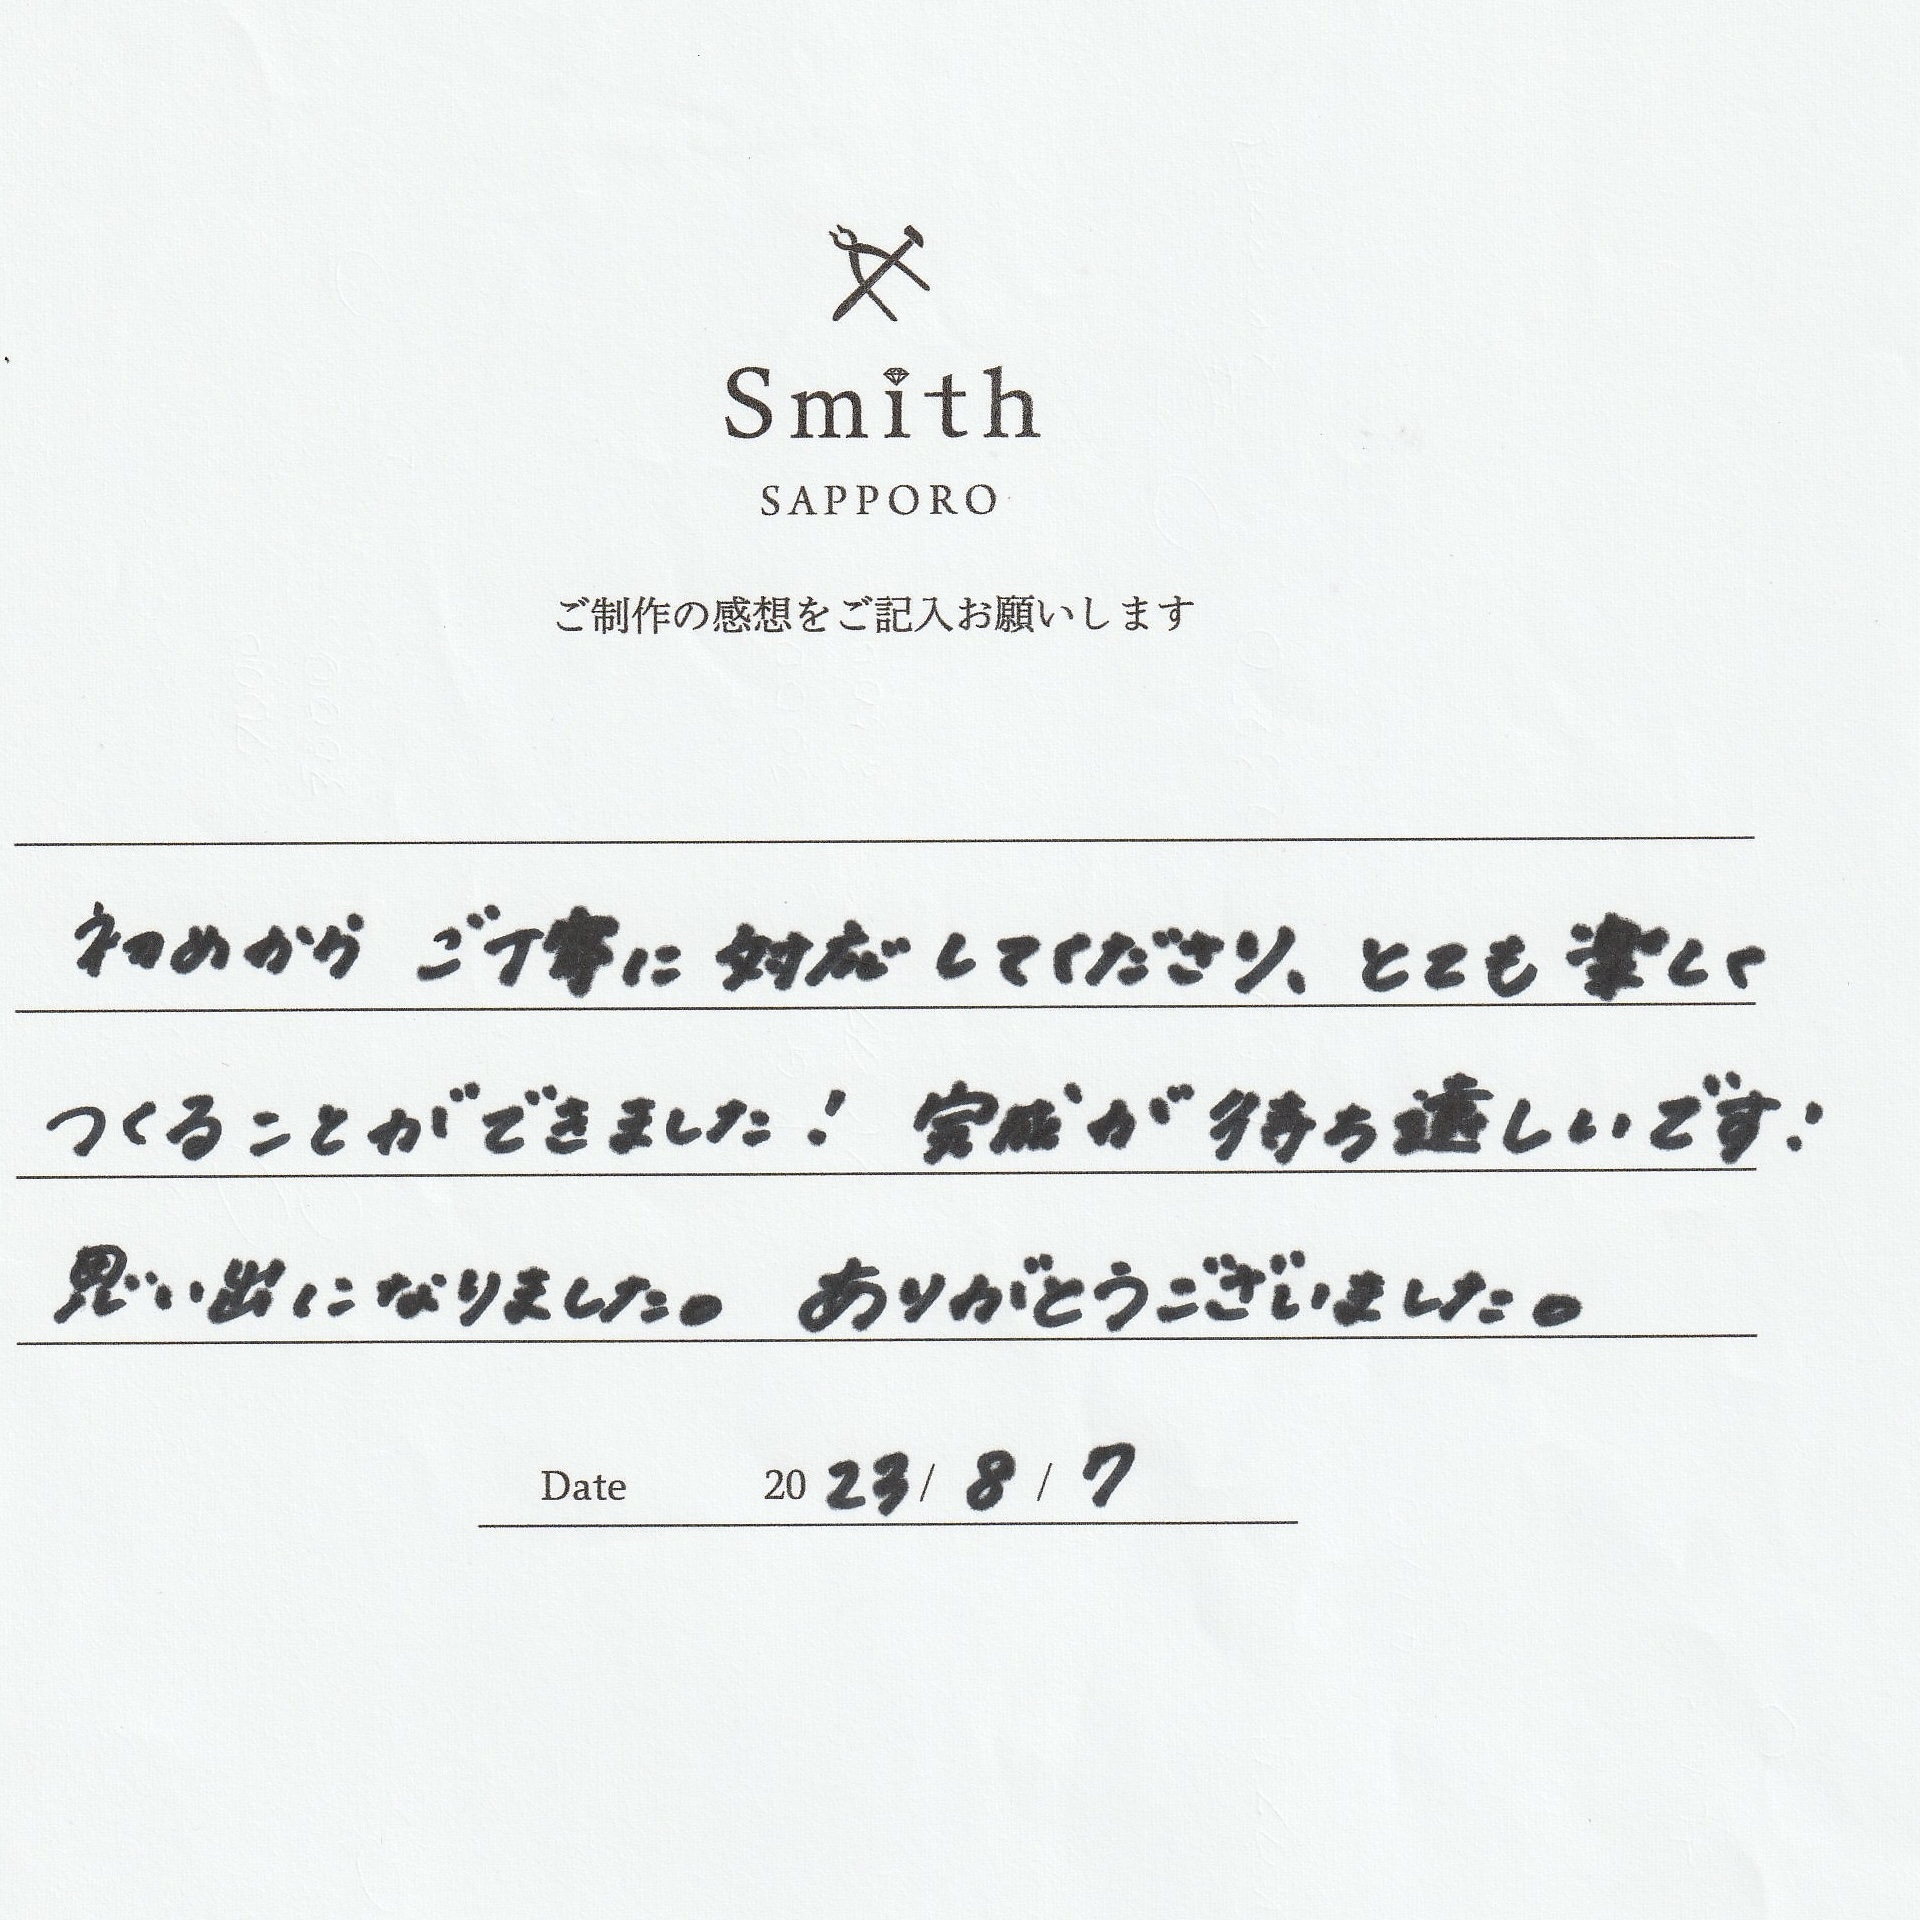 Smith
SAPPORO
ご制作の感想をご記入お願いします
初めから ご丁寧に 対応してくださり、とても楽しく
つくることができました! 完成が待ち遠しいです!
思い出になりました。 ありがとうございました。
Date 2023/8/7